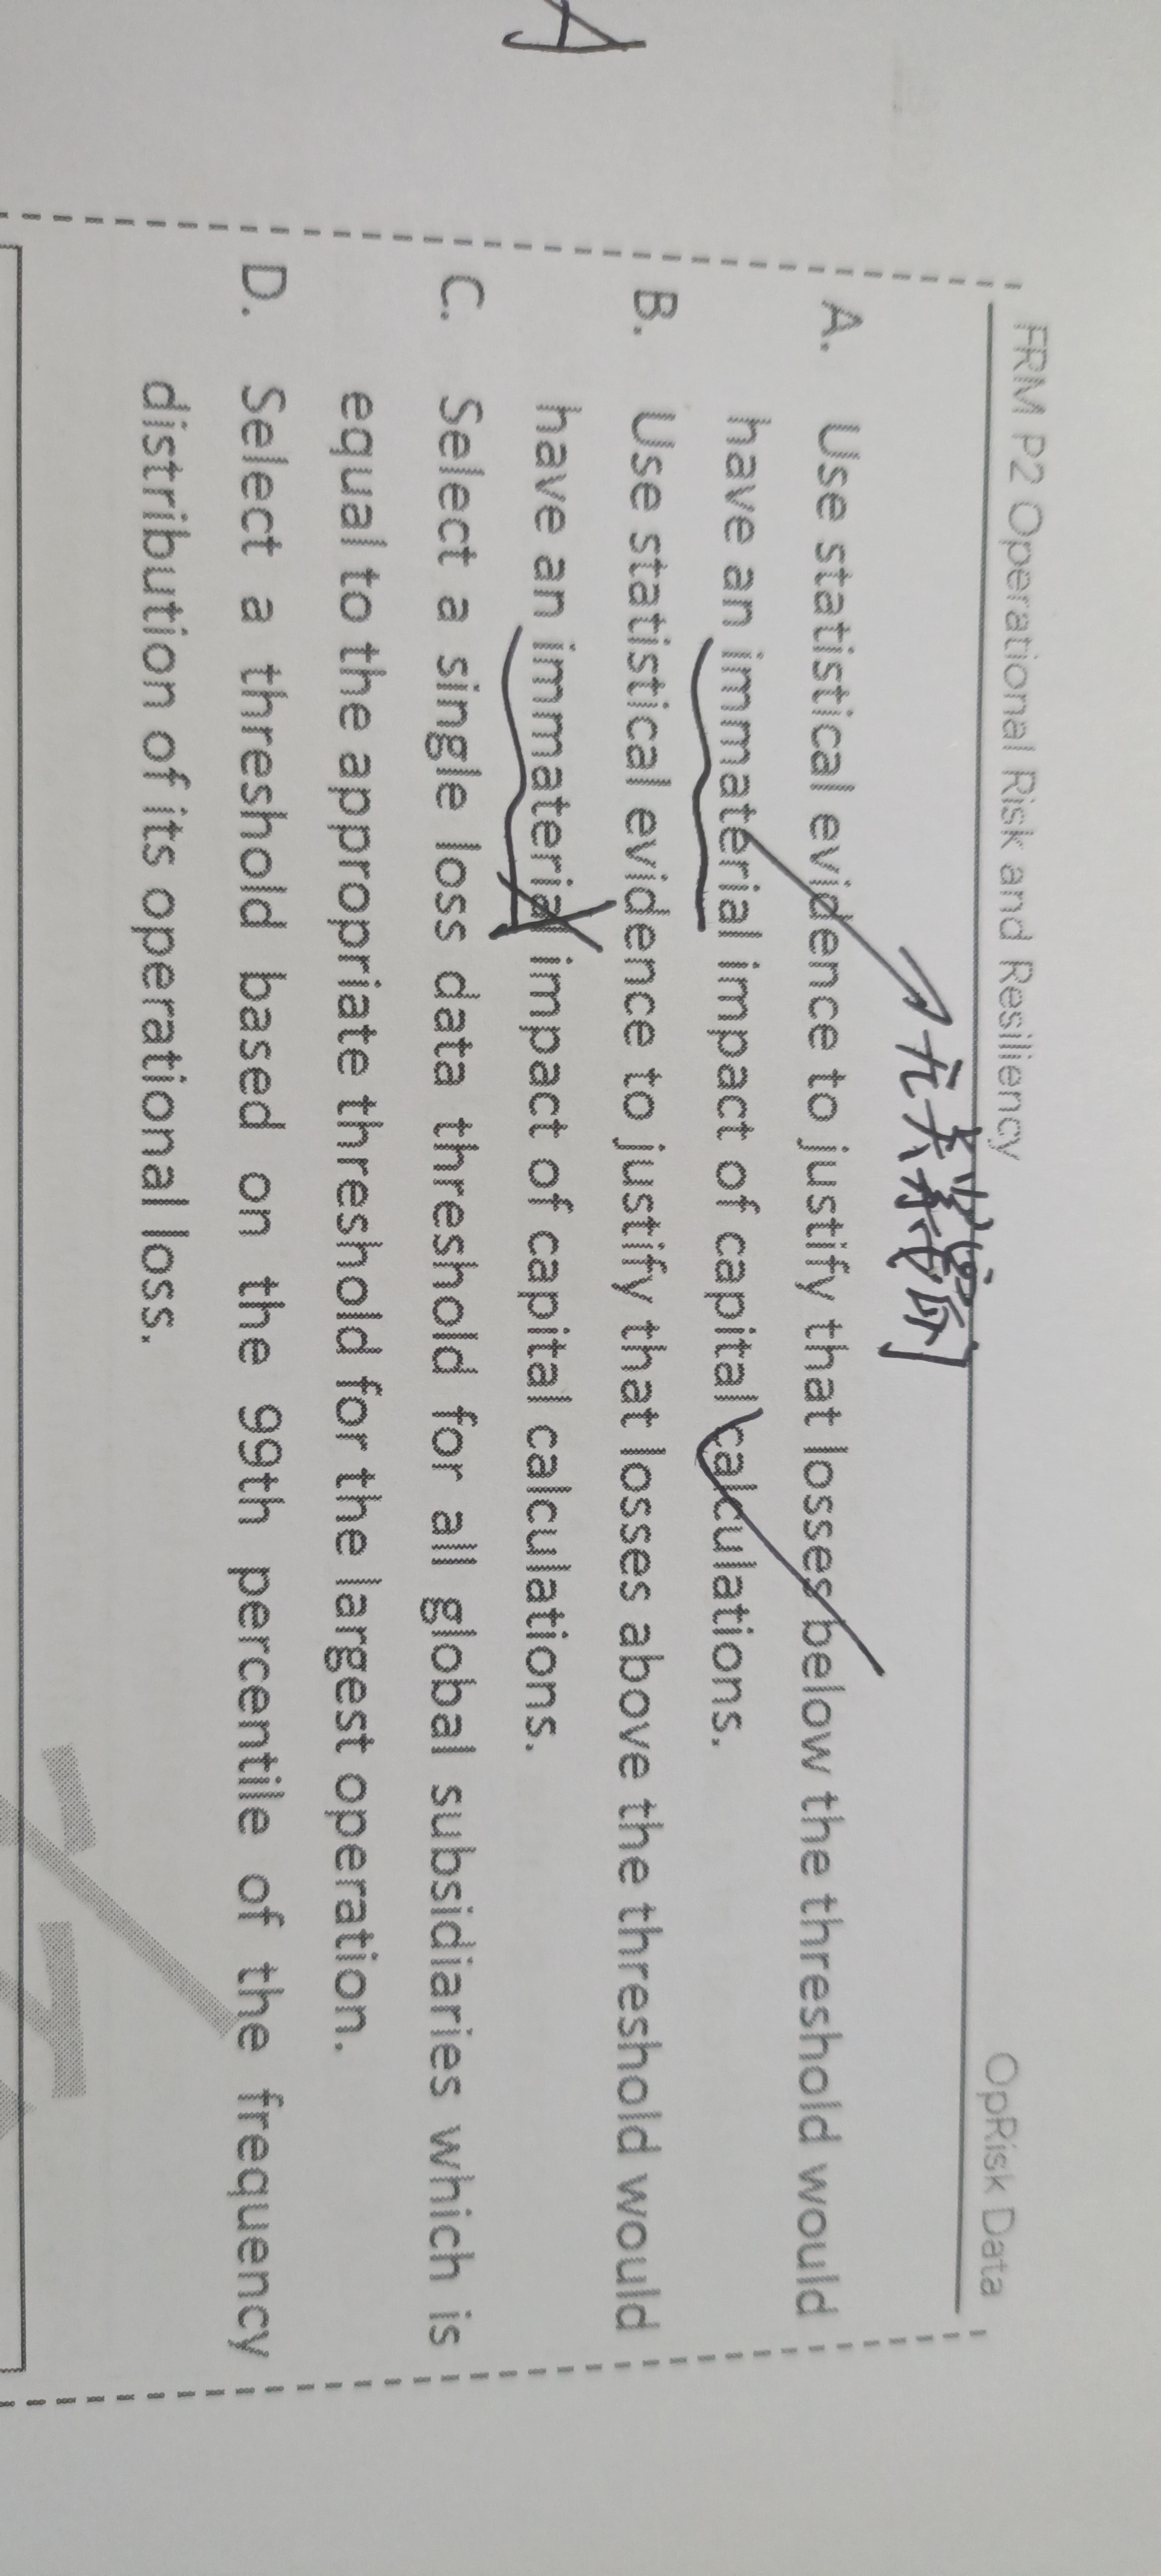 FRM P2 Operational Risk and Resiliency OpRisk Data
A. Use statistical evidence to justify that losses below the threshold would
have an immaterial impact of capital calculations.
B. Use statistical evidence to justify that losses above the threshold would
have an immaterial impact of capital calculations.
C. Select a single loss data threshold for all global subsidiaries which is
equal to the appropriate threshold for the largest operation.
D. Select a threshold based on the 99th percentile of the frequency
distribution of its operational loss.
A